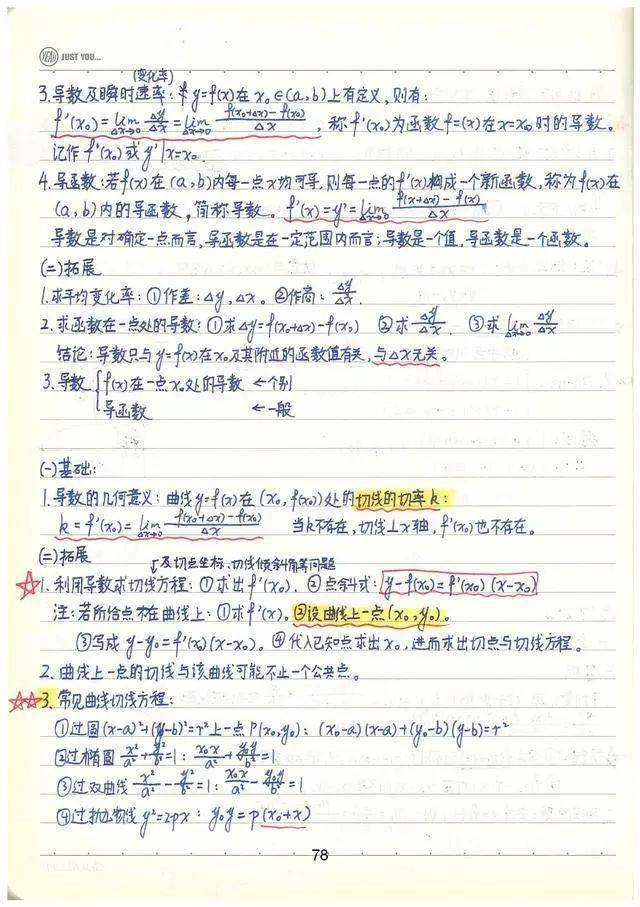 YEAH JUST YOU...
(变化率)
3.导数及瞬时速率:若y=f(x)在x₀∈(a,b)上有定义,则有:
f'(x₀)=lim Δx→0 Δy/Δx=lim Δx→0 f(x₀+Δx)-f(x₀)/Δx,称f'(x₀)为函数f=(x)在x=x₀时的导数。
记作f'(x₀)或y'|x=x₀.
4.导函数:若f(x)在(a,b)内每一点x均可导,则每一点的f'(x)构成一个新函数,称为f(x)在
(a,b)内的导函数,简称导数。f'(x)=y'=lim Δx→0 f(x+Δx)-f(x)/Δx
导数是对确定一点而言,导函数是在一定范围内而言;导数是一个值,导函数是一个函数。
(二)拓展
1.求平均变化率:①作差:Δy,Δx。②作商:Δy/Δx.
2.求函数在一点处的导数:①求Δy=f(x₀+Δx)-f(x₀) ②求Δy/Δx. ③求lim Δx→0 Δy/Δx
结论:导数只与y=f(x)在x₀及其附近的函数值有关,与Δx无关。
3.导数{f(x)在一点x₀处的导数 ←个别
导函数 ←一般
(一)基础:
1.导数的几何意义:曲线y=f(x)在(x₀,f(x₀))处的切线的切率k:
k=f'(x₀)=lim Δx→0 f(x₀+Δx)-f(x₀)/Δx 当k不存在,切线⊥x轴,f'(x₀)也不存在。
(二)拓展
↓及切点坐标、切线倾斜角等问题
☆1.利用导数求切线方程:①求出f'(x₀). ②点斜式:y-f(x₀)=f'(x₀)(x-x₀)
注:若所给点不在曲线上:①求f'(x)。②设曲线上一点(x₀,y₀)。
③写成y-y₀=f'(x₀)(x-x₀)。④代入已知点求出x₀,进而求出切点与切线方程。
2.曲线上一点的切线与该曲线可能不止一个公共点。
☆☆3.常见曲线切线方程:
①过圆(x-a)²+(y-b)²=r²上一点P(x₀,y₀):(x₀-a)(x-a)+(y₀-b)(y-b)=r²
②过椭圆x²/a²+y²/b²=1:x₀x/a²+y₀y/b²=1
③过双曲线x²/a²-y²/b²=1:x₀x/a²-y₀y/b²=1
④过抛物线y²=2px:y₀y=p(x₀+x)
78